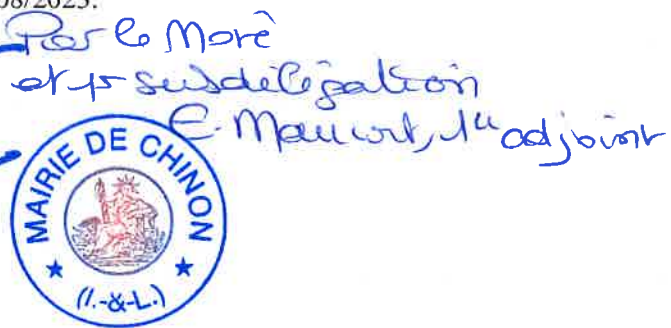 08/2023.
Par le Mare
et pr subdélégation
E. Maucort, 1er adjoint
MAIRIE DE CHINON
(I.-&-L.)